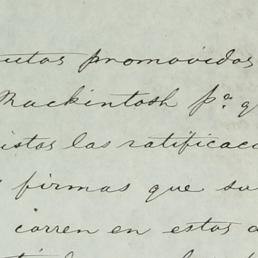 autos promovidos
Mackintosh pª q
istas las ratificac
firmas que su
corren en estos a